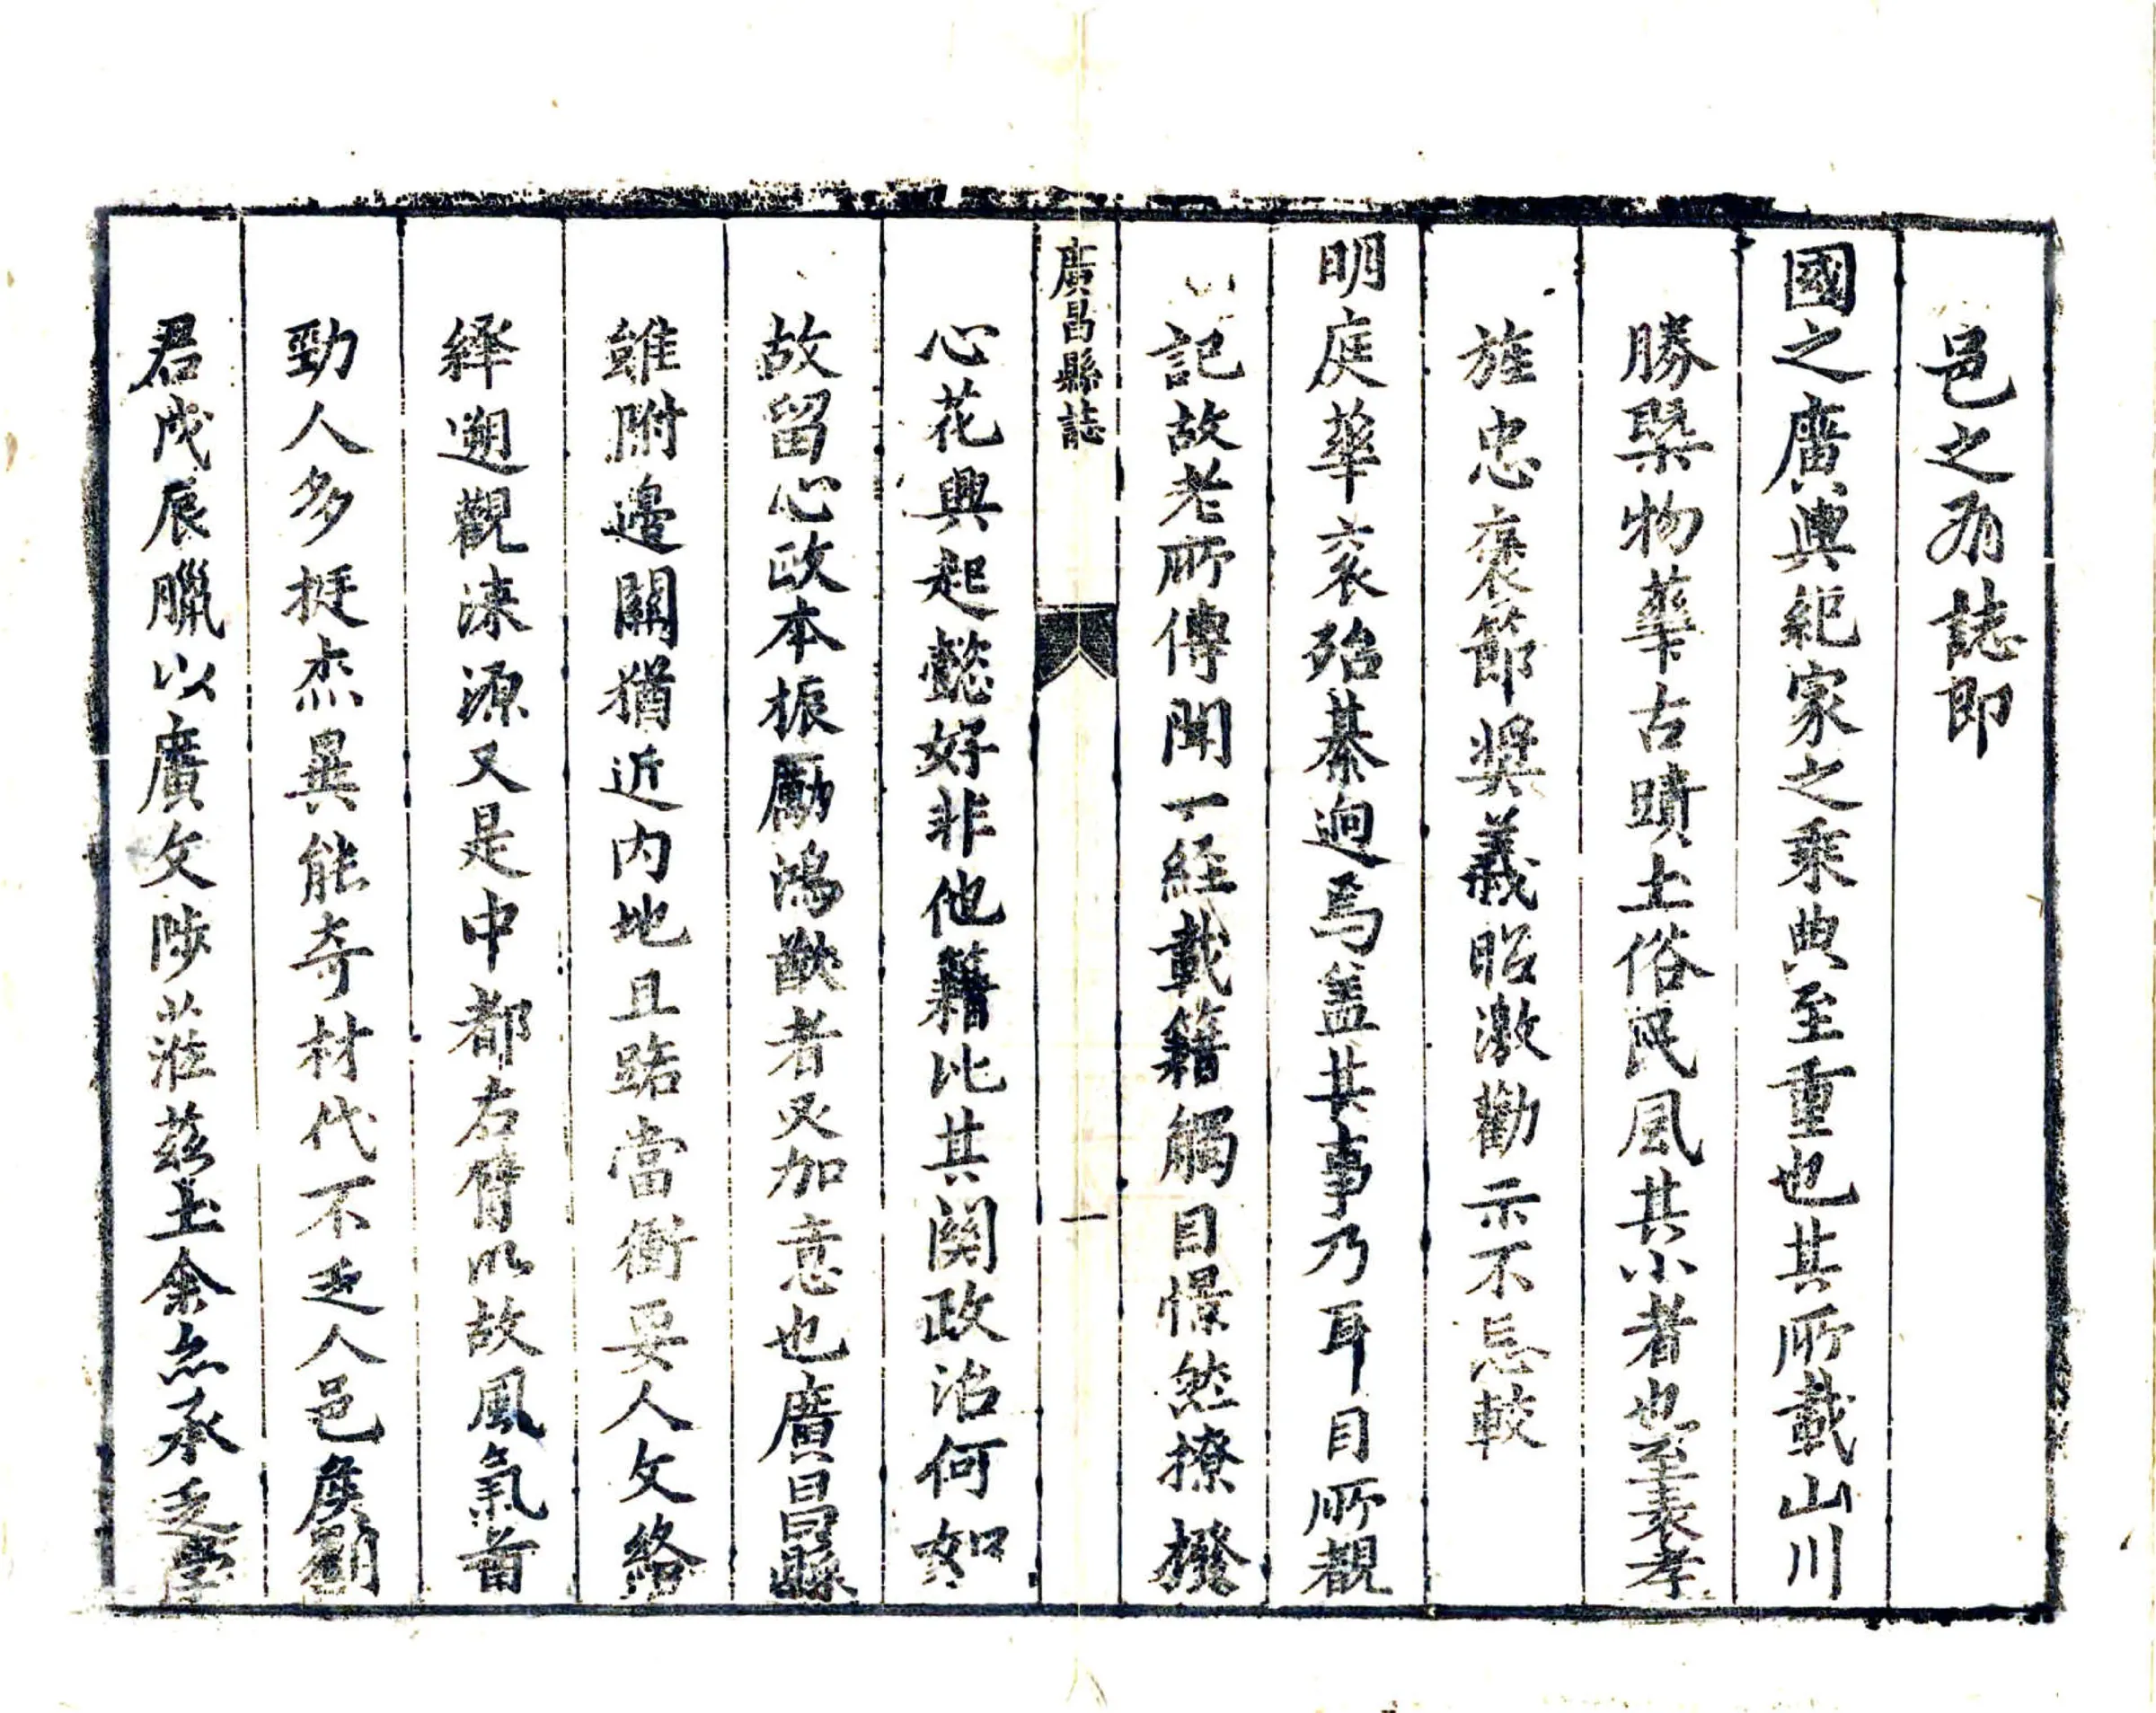 邑之有誌即
國之廣輿紀家之乘典至重也其所載山川
勝槩物華古蹟土俗民風其小者也至表孝
旌忠褒節奬義昭激勸示不忘較
明庭華袞殆綦迥焉盖其事乃耳目所覩
記故老所傳聞一經載籍觸目憬然撩撥
廣昌縣誌
一
心花興起懿好非他籍比其関政治何如
故留心政本振勵鴻猷者又加意也廣昌縣
雖附邊關猶近内地且踞當衝要人文絡
繹遡觀淶源又是中都右臂以故風氣首
勁人多挺杰異能奇材代不乏人邑侯劉
君戊辰臘以廣文陟蒞茲土余忝承乏學